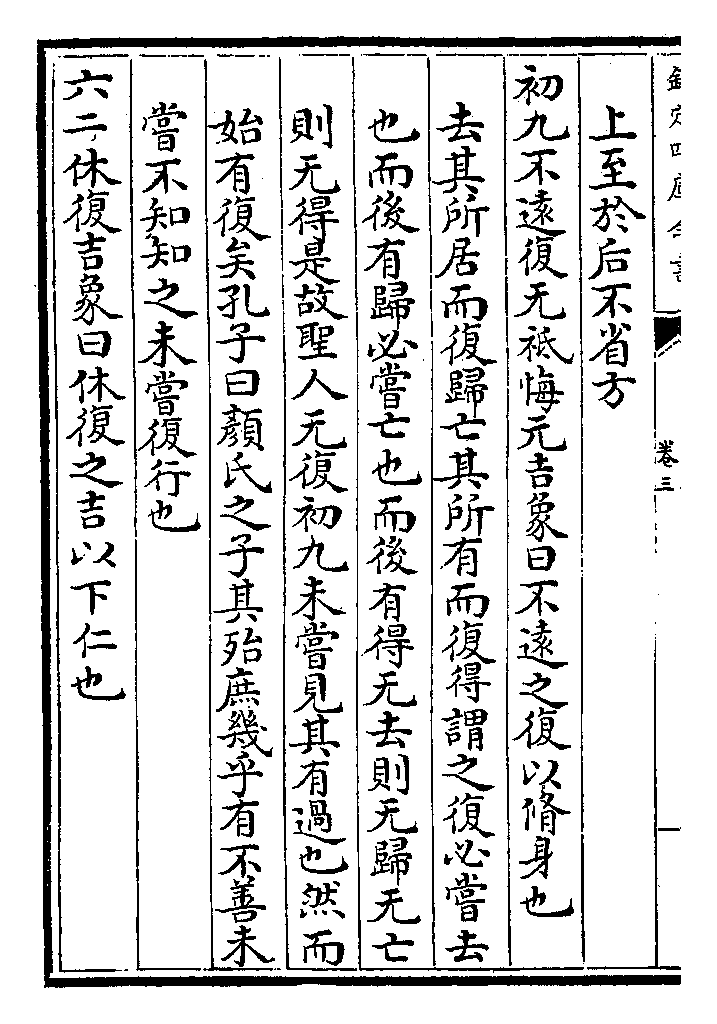 欽定四庫全書
卷三
上至於后不省方
初九不遠復无祗悔元吉象曰不遠之復以脩身也
去其所居而復歸亡其所有而復得謂之復必嘗去
也而後有歸必嘗亡也而後有得无去則无歸无亡
則无得是故聖人无復初九未嘗見其有過也然而
始有復矣孔子曰顏氏之子其殆庶幾乎有不善未
嘗不知知之未嘗復行也
六二休復吉象曰休復之吉以下仁也